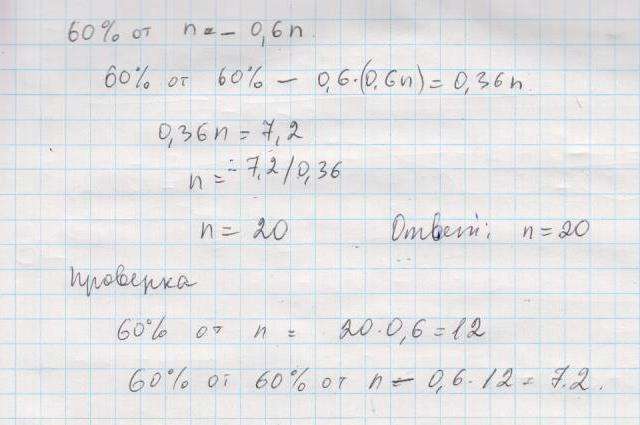 60% от n - 0,6n.
60% от 60% - 0,6·(0,6n) = 0,36n.
0,36n = 7,2
n = 7,2/0,36
n = 20 Ответ: n = 20
Проверка
60% от n = 20·0,6 = 12
60% от 60% от n - 0,6·12 = 7.2.